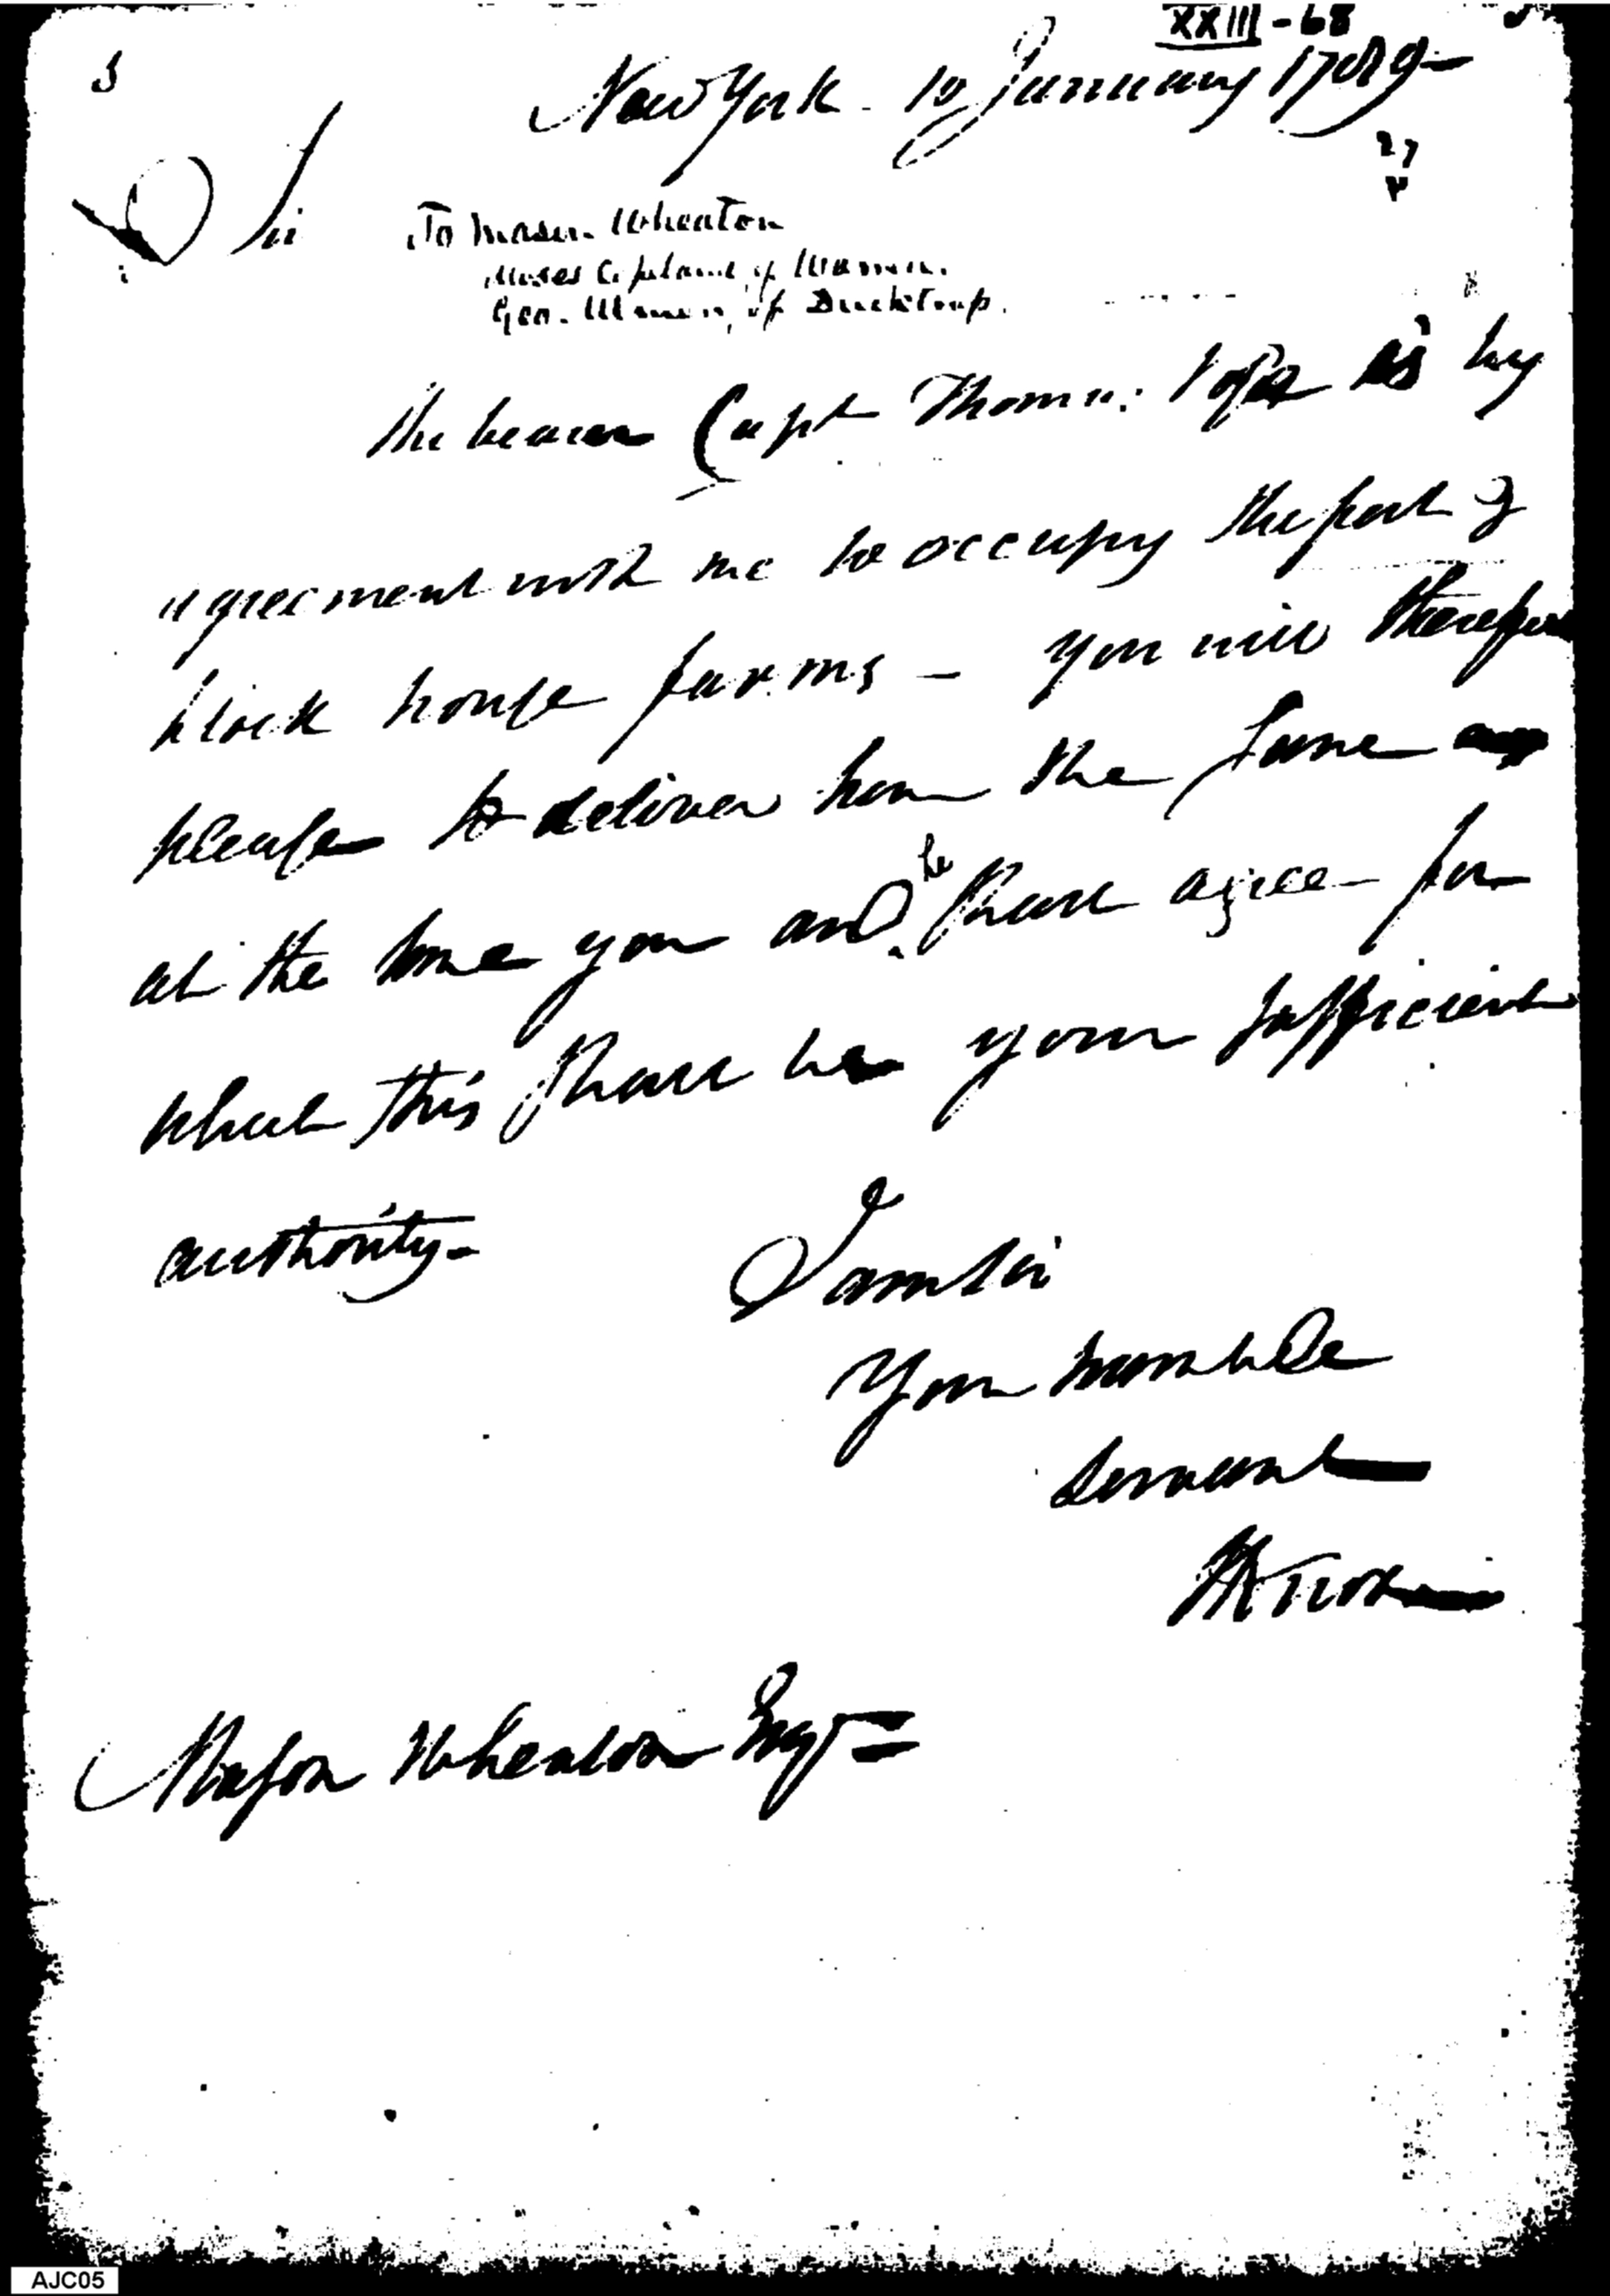 XXIII-68
New York 10 January 1789
Sir
To Mason Wheaton
Moses Copeland of Warren.
Geo. Ulmer, of Ducktrap.
the bearer Capt Thomas is by
agreement with me to occupy the part of
block house farms – you will therefore
please to deliver him the same
at the time you and he shall agree – for
which this shall be your sufficient
authority –
I am Sir
Your humble
Servant
HKnox
Mason Wheaton Esqr
AJC05